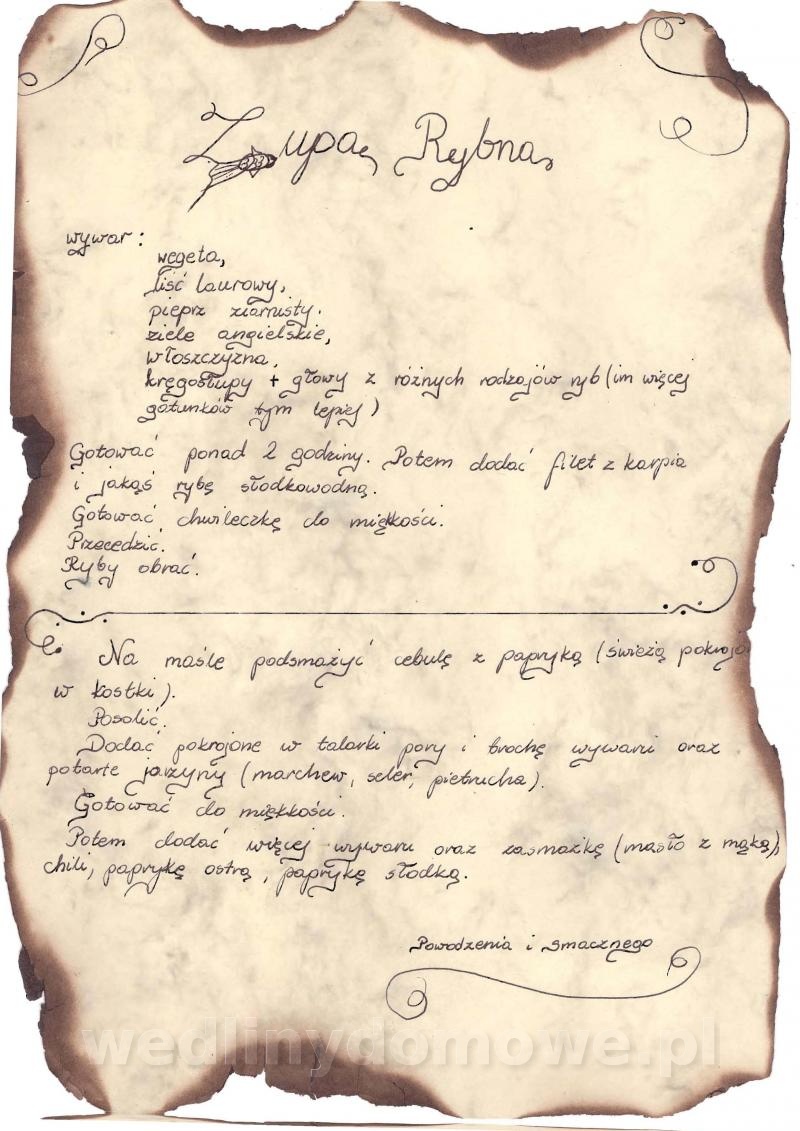 Zupa Rybna
wywar:
wegeta,
liść laurowy,
pieprz ziarnisty.
ziele angielskie,
włoszczyzna,
kręgosłupy + głowy z różnych rodzajów ryb (im więcej
gatunków tym lepiej)
Gotować ponad 2 godziny. Potem dodać filet z karpia
i jakąś rybę słodkowodną.
Gotować chwileczkę do miękkości.
Przecedzić.
Ryby obrać.
Na maśle podsmażyć cebulę z papryką (świeżą pokrojo
w kostki).
Posolić.
Dodać pokrojone w talarki pory i trochę wywaru oraz
potarte jarzyny (marchew, seler, pietrucha).
Gotować do miękkości.
Potem dodać więcej wywaru oraz zasmażkę (masło z mąką),
chili, paprykę ostrą, paprykę słodką.
Powodzenia i smacznego
wedlinydomowe.pl